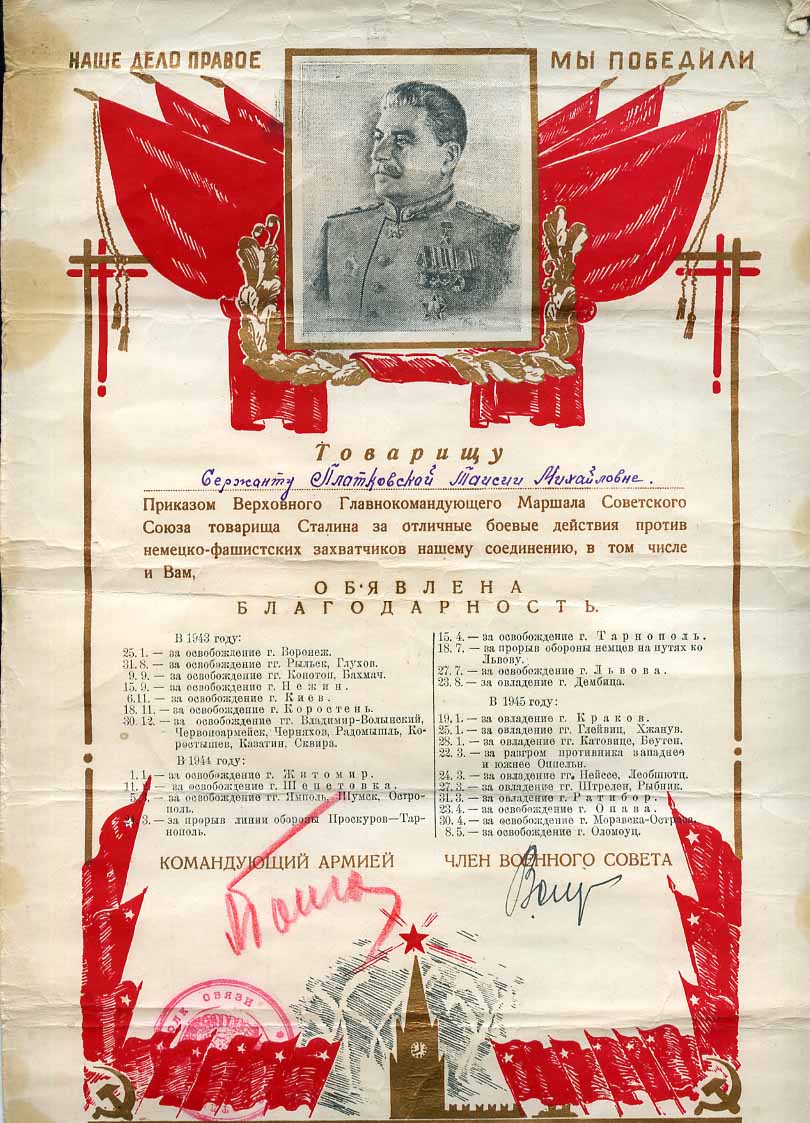 НАШЕ ДЕЛО ПРАВОЕ
МЫ ПОБЕДИЛИ
Товарищу
Сержанту Платковской Таисии Михайловне.
Приказом Верховного Главнокомандующего Маршала Советского
Союза товарища Сталина за отличные боевые действия против
немецко-фашистских захватчиков нашему соединению, в том числе
и Вам,
ОБ'ЯВЛЕНА
БЛАГОДАРНОСТЬ.
В 1943 году:
25. 1. — за освобождение г. Воронеж.
31. 8. — за освобождение гг. Рыльск, Глухов.
9. 9. — за освобождение гг. Конотоп, Бахмач.
15. 9. — за освобождение г. Нежин.
6.11. — за освобождение г. Киев.
18. 11. — за освобождение г. Коростень.
30. 12. — за освобождение гг. Владимир-Волынский,
Червоноармейск, Черняхов, Радомышль, Ко-
ростышев, Казатин, Сквира.
В 1944 году:
1. 1. — за освобождение г. Житомир.
11. — за освобождение г. Шепетовка.
5. — за освобождение гг. Ямполь, Шумск, Остро-
поль.
3. — за прорыв линии обороны Проскуров—Тар-
нополь.
15. 4. — за освобождение г. Тарнополь.
18. 7. — за прорыв обороны немцев на путях ко
Львову.
27. 7. — за освобождение г. Львова.
23. 8. — за овладение г. Дембица.
В 1945 году:
19. 1. — за овладение г. Краков.
25. 1. — за овладение гг. Глейвиц, Хжанув.
28. 1. — за овладение гг. Катовице, Беутен.
22. 3. — за разгром противника западнее
и южнее Оппельн.
24. 3. — за овладение гг. Нейссе, Леобшютц.
27. 3. — за овладение гг. Штрелен, Рыбник.
31. 3. — за овладение г. Ратибор.
23. 4. — за овладение г. Опава.
30. 4. — за овладение г. Моравска-Острава.
8. 5. — за овладение г. Оломоуц.
КОМАНДУЮЩИЙ АРМИЕЙ
ЧЛЕН ВОЕННОГО СОВЕТА
СВЯЗИ